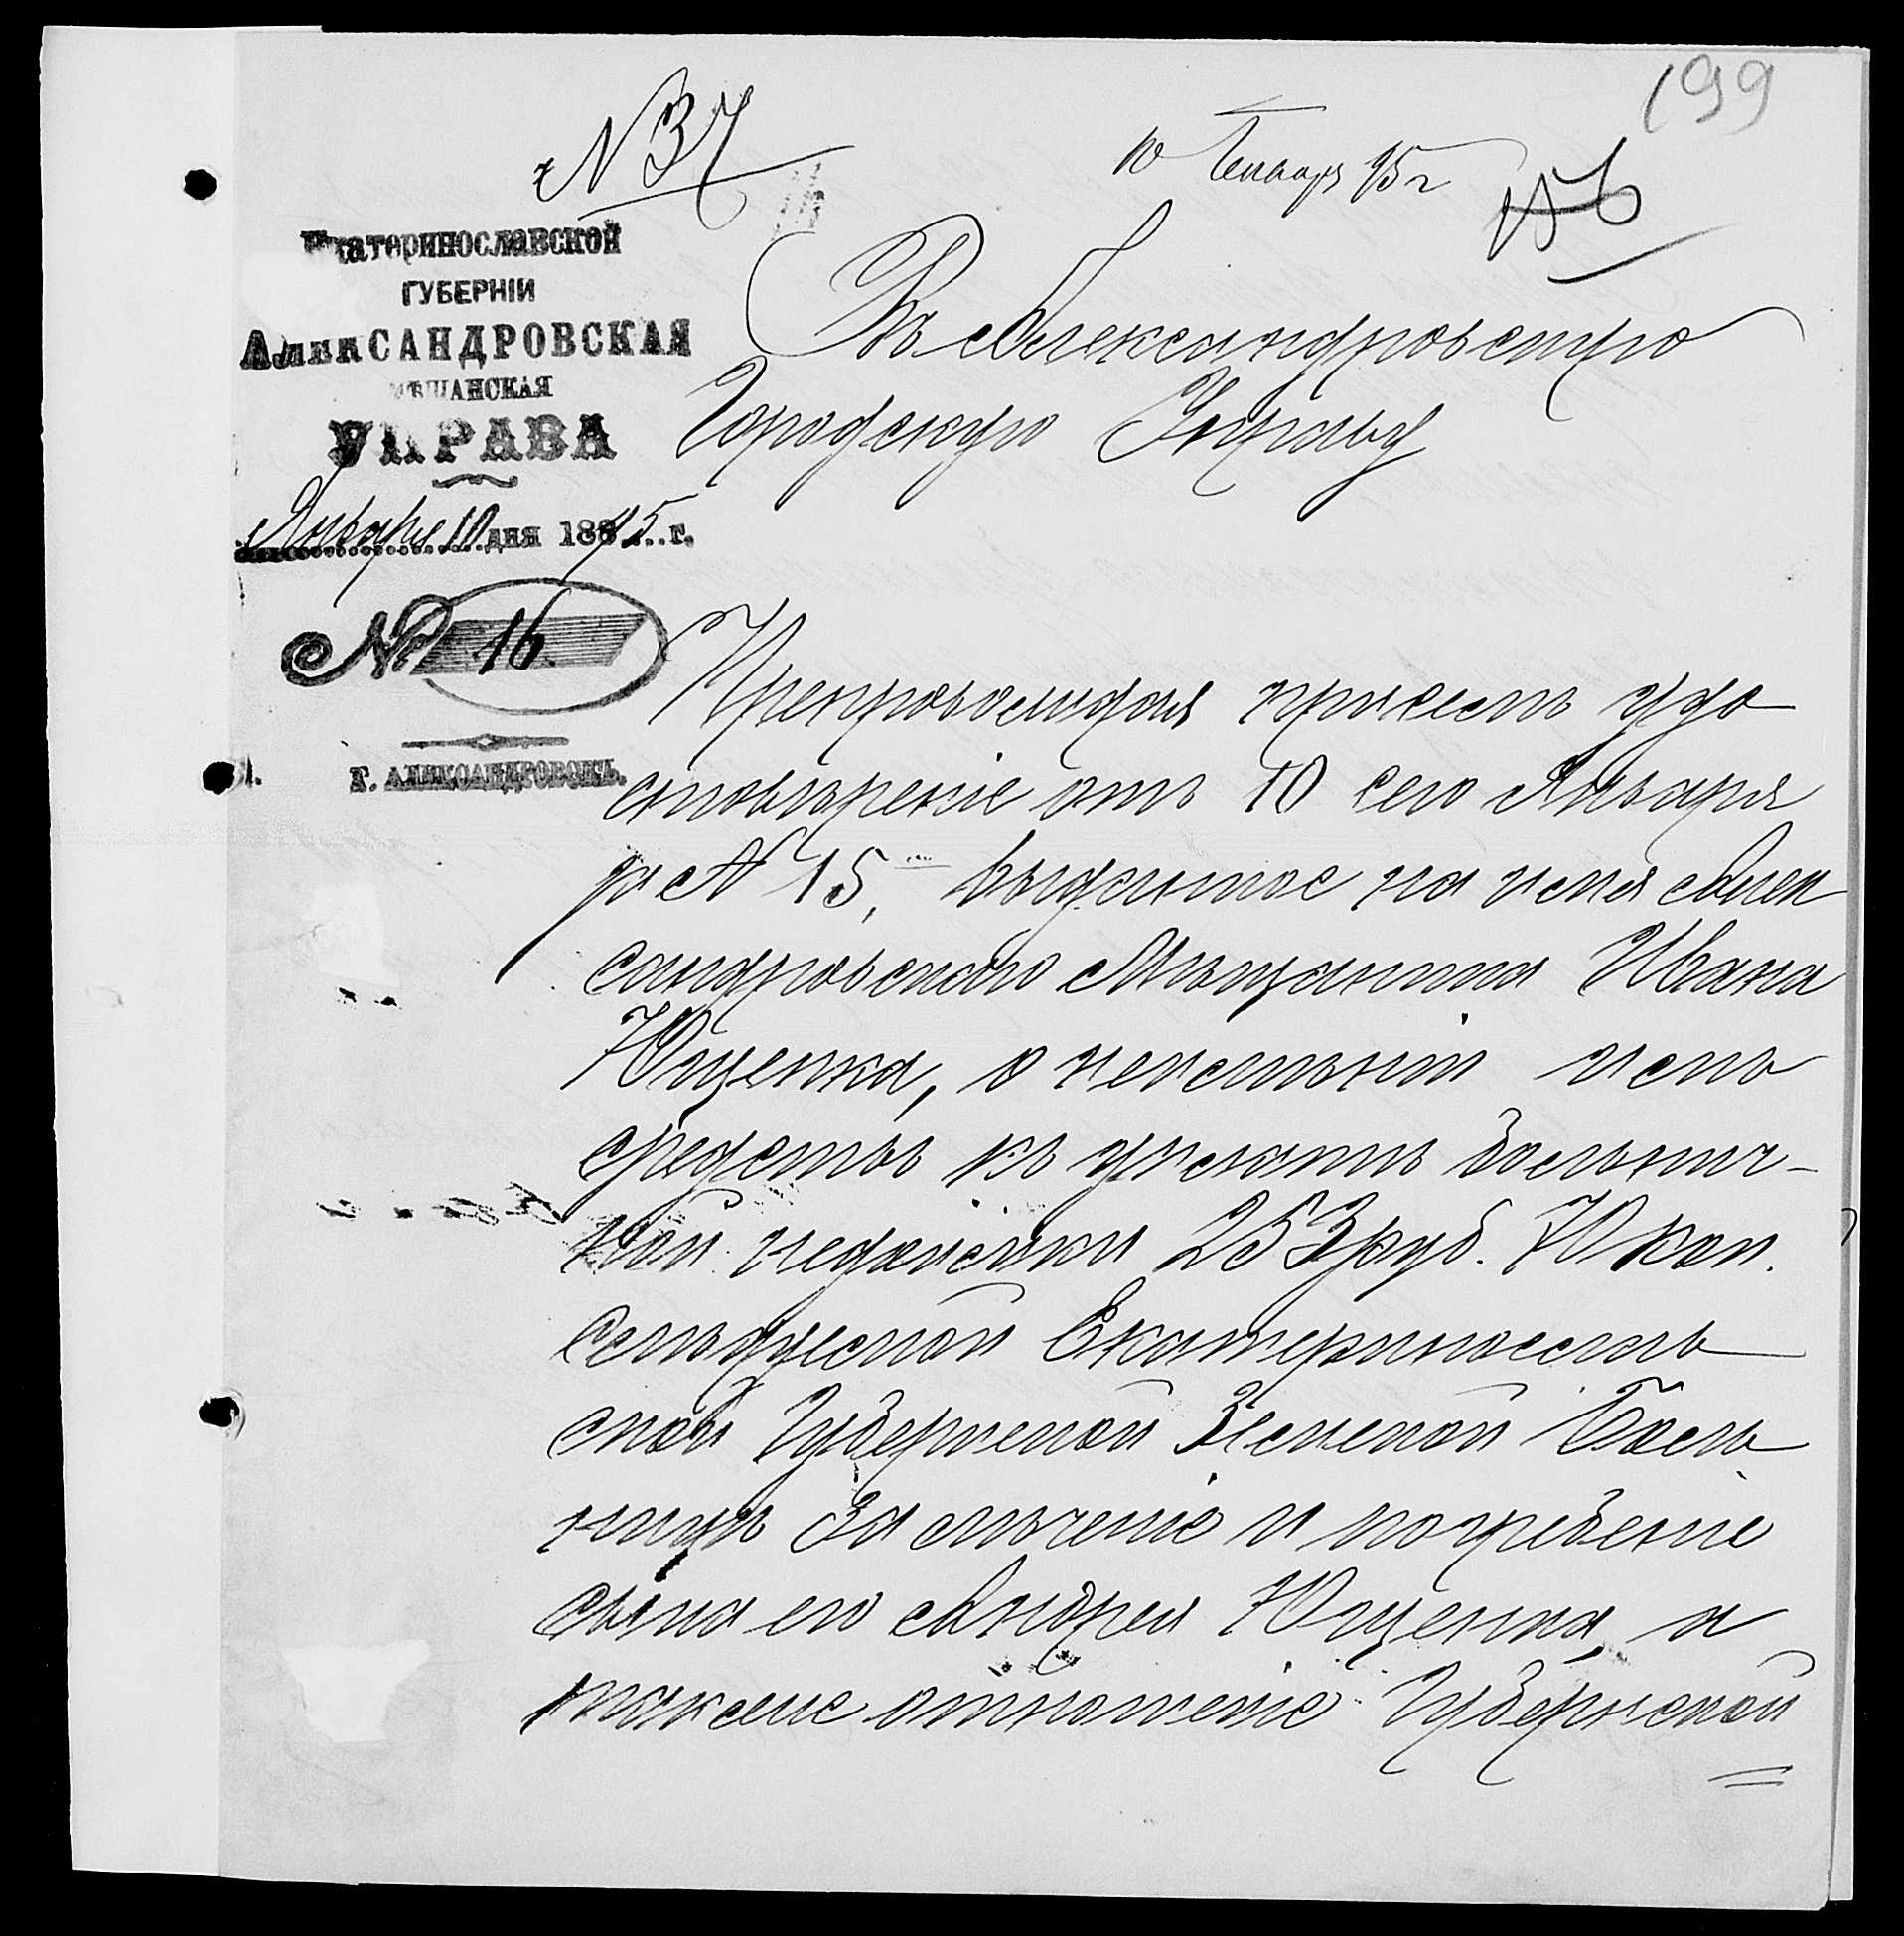 199
№ 37
10 Января 95 г
Екатеринославской
ГУБЕРНІИ
АлекСАНДРОВСКАЯ
МѢЩАНСКАЯ
УПРАВА
Января 10 дня 1895 г.
№ 16
Г. АЛЕКСАНДРОВСКЪ.
Въ Александровскую
Городскую Управу
Препровождая присемъ удо
стовѣреніе отъ 10 сего Января
за № 15, выданное на имя Алек
сандровскаго Мѣщанина Ивана
Ющенка, о неимѣніи имъ
средствъ къ уплатѣ больнич-
ной недоимки 253 руб. 70 коп.
слѣдуемой Екатеринослав
ской Губернской Земской Боль
ницѣ за леченіе и погребеніе
сына его Андрея Ющенка, а
также отношеніе Губернской